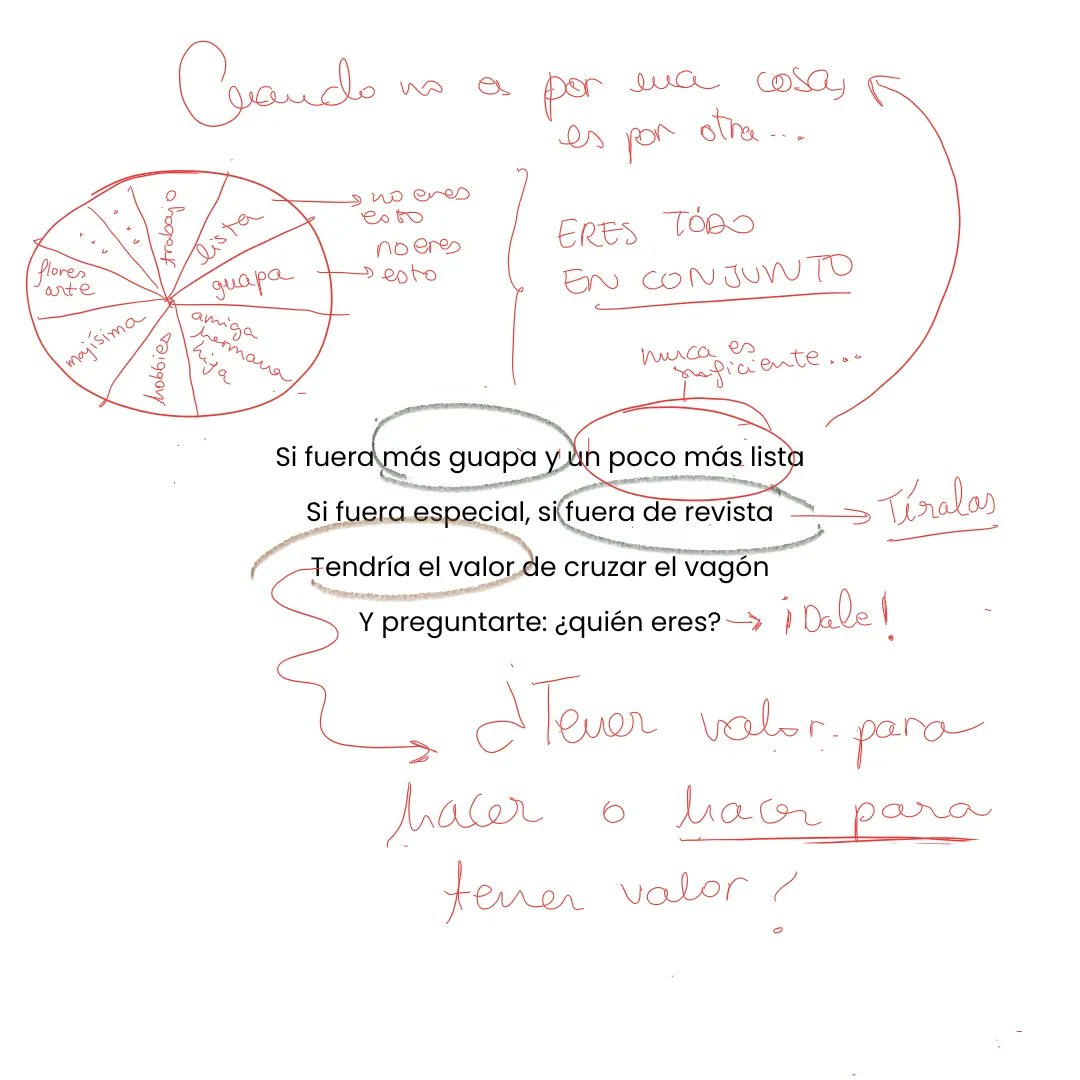 Cuando no es por una cosa,
es por otra...
trabajo
lista
guapa
amiga
hermana
hija
hobbies
majísima
flores
arte
no eres
esto
no eres
esto
ERES TODO
EN CONJUNTO
nunca es
suficiente...
Si fuera más guapa y un poco más lista
Si fuera especial, si fuera de revista
Tíralas
Tendría el valor de cruzar el vagón
Y preguntarte: ¿quién eres?
¡Dale!
¿Tener valor para
hacer o hacer para
tener valor?